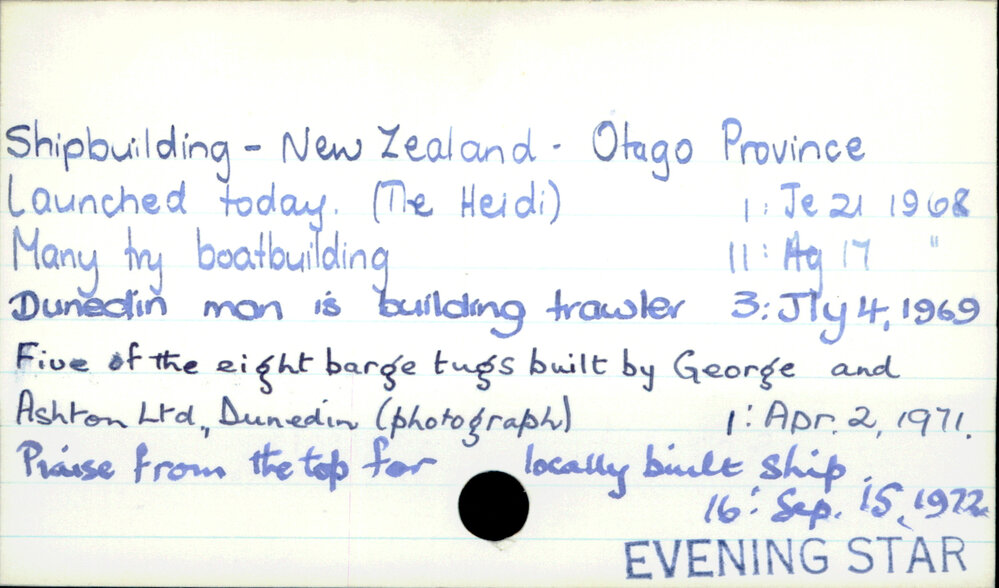 Shipbuilding - New Zealand - Otago Province
Launched today. (The Heidi) 1: Je 21 1968
Many try boatbuilding 11: Ag 17 "
Dunedin man is building trawler 3: Jly 4, 1969
Five of the eight barge tugs built by George and
Ashton Ltd., Dunedin (photograph) 1: Apr. 2, 1971.
Praise from the top for locally built ship.
16: Sep. 15, 1972
EVENING STAR